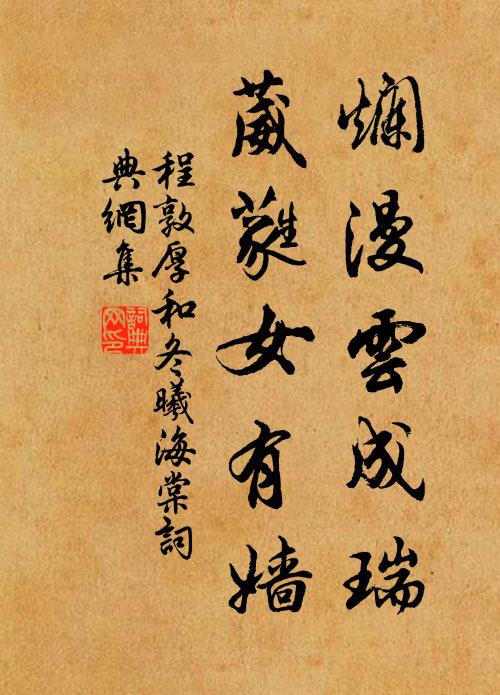 爛漫雲成瑞
葳蕤女有嬙
程敦厚和冬曦海棠詞
典網集
詞典網印